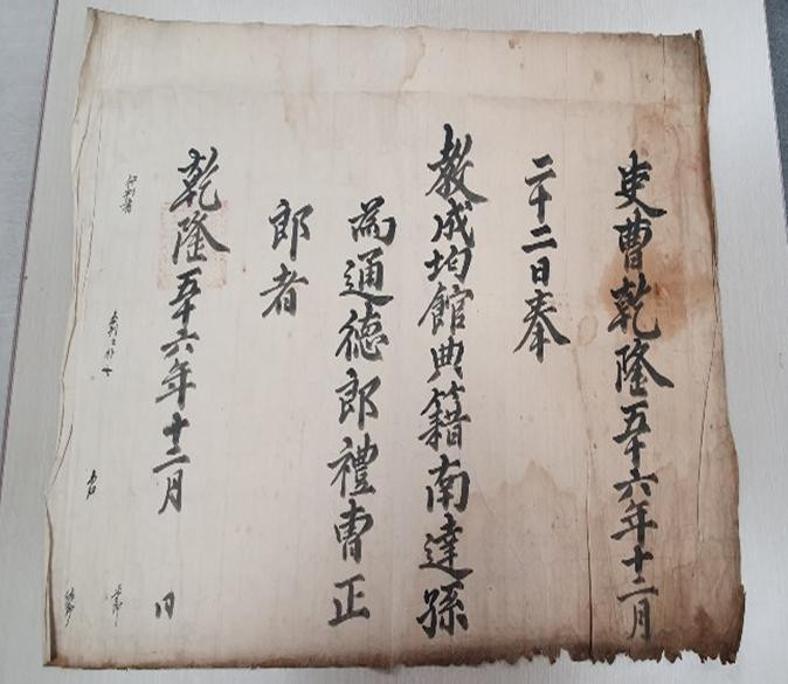 吏曹乾隆五十六年十二月
二十二日奉
敎成均館典籍南達孫
為通德郎禮曹正
郎者
乾隆五十六年十二月 日